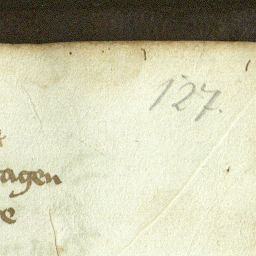 127.
agen
e